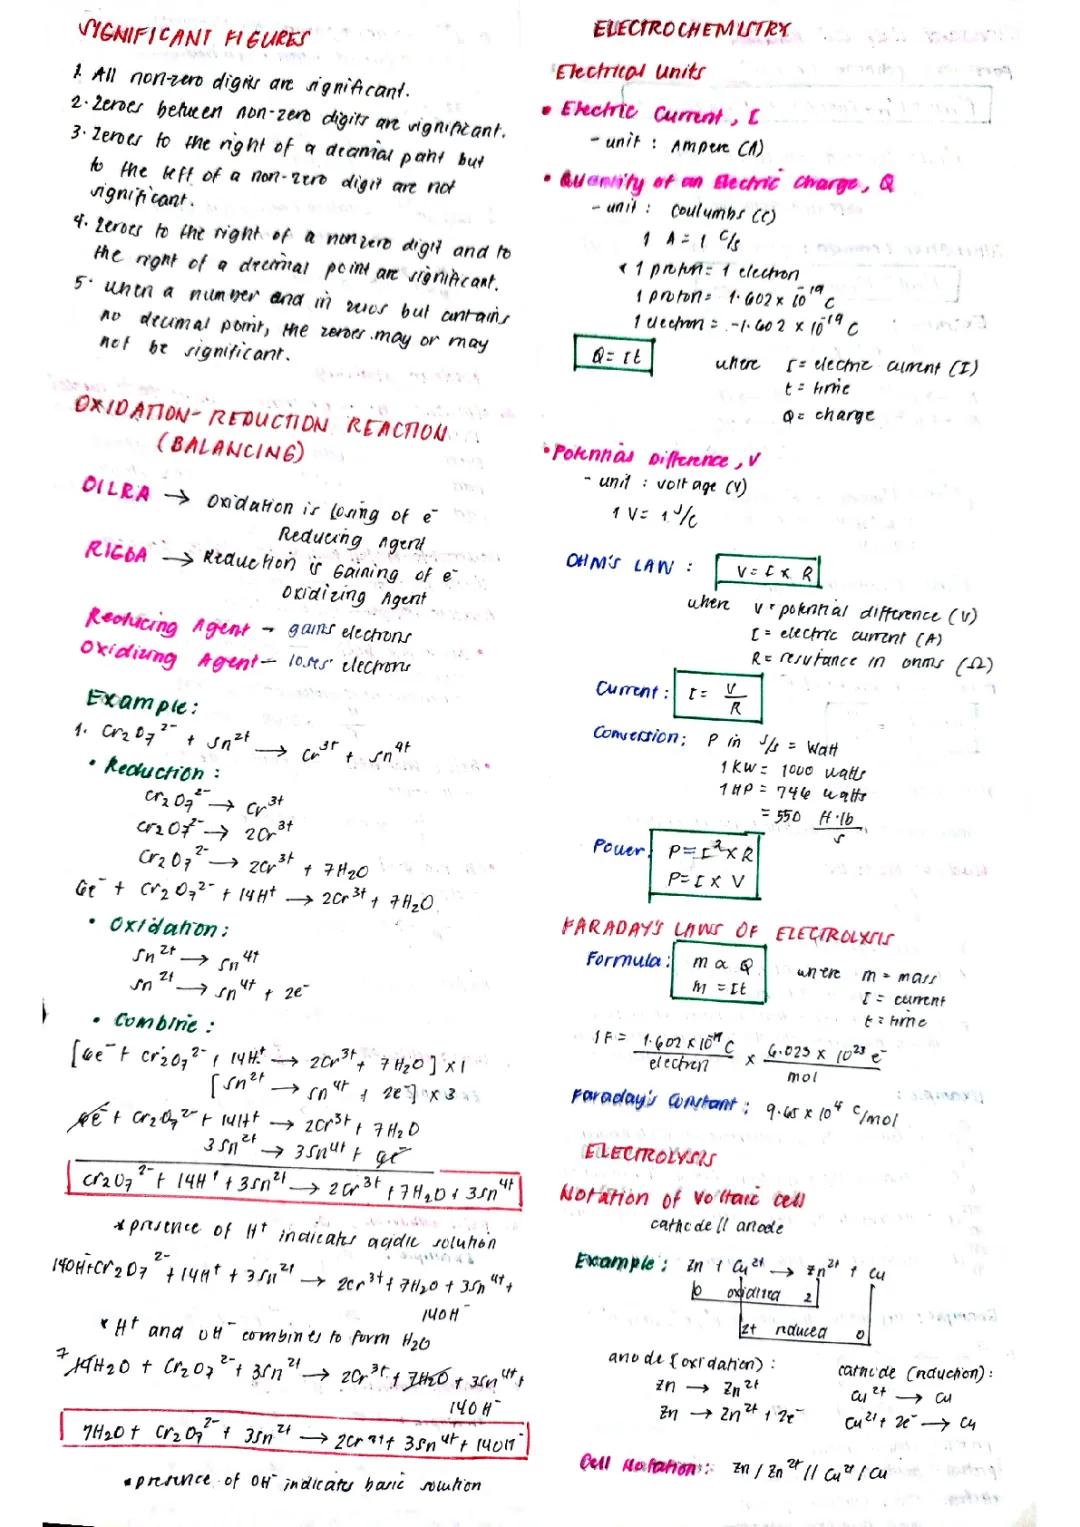 SIGNIFICANT FIGURES
1. All non-zero digits are significant.
2. Zeroes between non-zero digits are significant.
3. Zeroes to the right of a decimal point but
to the left of a non-zero digit are not
significant.
4. Zeroes to the right of a nonzero digit and to
the right of a decimal point are significant.
5. When a number end in zeros but contains
no decimal point, the zeroes may or may
not be significant.
OXIDATION-REDUCTION REACTION
(BALANCING)
OILRA → Oxidation is Losing of e⁻
Reducing Agent
RIGOA → Reduction is Gaining of e⁻
Oxidizing Agent
Reducing Agent - gains electrons
Oxidizing Agent - loses electrons
Example:
1. Cr₂O₇²⁻ + Sn²⁺ → Cr³⁺ + Sn⁴⁺
• Reduction:
Cr₂O₇²⁻ → Cr³⁺
Cr₂O₇²⁻ → 2Cr³⁺
Cr₂O₇²⁻ → 2Cr³⁺ + 7H₂O
6e⁻ + Cr₂O₇²⁻ + 14H⁺ → 2Cr³⁺ + 7H₂O
• Oxidation:
Sn²⁺ → Sn⁴⁺
Sn²⁺ → Sn⁴⁺ + 2e⁻
• Combine:
[6e⁻ + Cr₂O₇²⁻ + 14H⁺ → 2Cr³⁺ + 7H₂O] x 1
[Sn²⁺ → Sn⁴⁺ + 2e⁻] x 3
6e⁻ + Cr₂O₇²⁻ + 14H⁺ → 2Cr³⁺ + 7H₂O
3Sn²⁺ → 3Sn⁴⁺ + 6e⁻
Cr₂O₇²⁻ + 14H⁺ + 3Sn²⁺ → 2Cr³⁺ + 7H₂O + 3Sn⁴⁺
* presence of H⁺ indicates acidic solution
14OH⁻ + Cr₂O₇²⁻ + 14H⁺ + 3Sn²⁺ → 2Cr³⁺ + 7H₂O + 3Sn⁴⁺ +
14OH⁻
* H⁺ and OH⁻ combines to form H₂O
7 14H₂O + Cr₂O₇²⁻ + 3Sn²⁺ → 2Cr³⁺ + 7H₂O + 3Sn⁴⁺ +
14OH⁻
7H₂O + Cr₂O₇²⁻ + 3Sn²⁺ → 2Cr³⁺ + 3Sn⁴⁺ + 14OH⁻
* presence of OH⁻ indicates basic solution
ELECTROCHEMISTRY
Electrical Units
• Electric Current, I
- unit : Ampere (A)
• Quantity of an Electric Charge, Q
- unit : Coulumbs (C)
1 A = 1 C/s
* 1 proton = 1 electron
1 proton = 1.602 x 10⁻¹⁹ C
1 electron = -1.602 x 10⁻¹⁹ C
Q = It
where I = electric current (I)
t = time
Q = charge
• Potential Difference, V
- unit : voltage (V)
1 V = 1 J/C
OHM'S LAW : V = I x R
where V = potential difference (V)
I = electric current (A)
R = resistance in ohms (Ω)
Current : I = V/R
Conversion: P in J/s = Watt
1 KW = 1000 watts
1 HP = 746 watts
= 550 ft·lb/s
Power: P = I² x R
P = I x V
FARADAY'S LAWS OF ELECTROLYSIS
Formula: m α Q
m = It
where m = mass
I = current
t = time
1 F = 1.602 x 10⁻¹⁹ C/electron x 6.023 x 10²³ e⁻/mol
Faraday's Constant : 9.65 x 10⁴ C/mol
ELECTROLYSIS
Notation of Voltaic Cell
cathode || anode
Example: Zn + Cu²⁺ → Zn²⁺ + Cu
0 oxidized 2
2+ reduced 0
anode (oxidation) :
Zn → Zn²⁺
Zn → Zn²⁺ + 2e⁻
cathode (reduction) :
Cu²⁺ → Cu
Cu²⁺ + 2e⁻ → Cu
Cell Notation: Zn / Zn²⁺ // Cu²⁺ / Cu